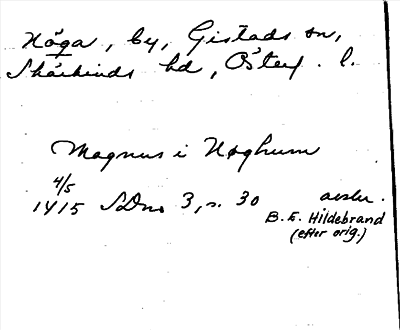 Nöga, by, Gistads sn,
Skärkinds hd, Österg. l.
Magnus i Nøghum
4/5
1415 SDns 3, s. 30 avskr.
B. E. Hildebrand
(efter orig.)